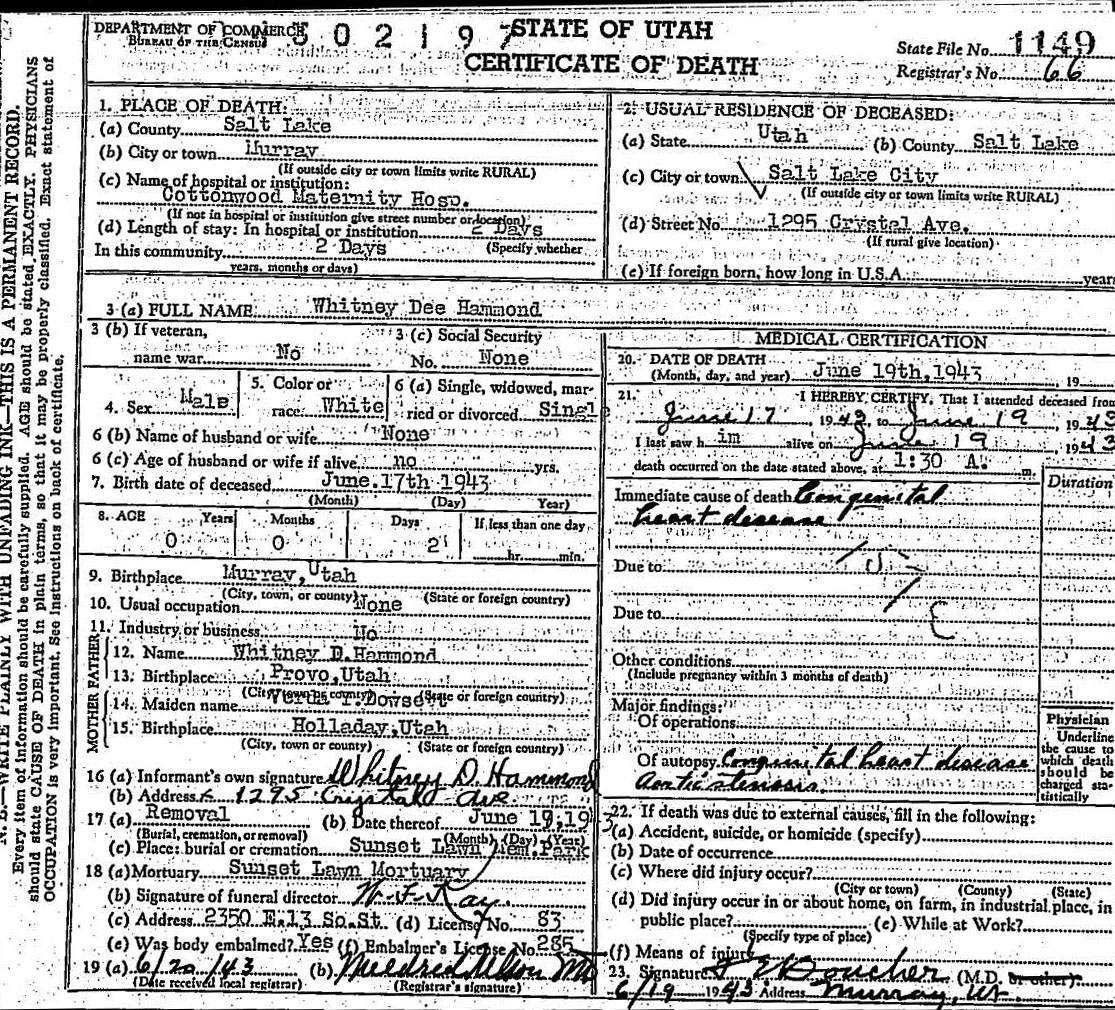 DEPARTMENT OF COMMERCE
BUREAU OF THE CENSUS
302197
STATE OF UTAH
CERTIFICATE OF DEATH
State File No. 1149
Registrar's No. 66
N. B.—WRITE PLAINLY WITH UNFADING INK—THIS IS A PERMANENT RECORD.
Every item of information should be carefully supplied. AGE should be stated EXACTLY. PHYSICIANS
should state CAUSE OF DEATH in plain terms, so that it may be properly classified. Exact statement of
OCCUPATION is very important. See instructions on back of certificate.
1. PLACE OF DEATH:
(a) County Salt Lake
(b) City or town Murray
(If outside city or town limits write RURAL)
(c) Name of hospital or institution:
Cottonwood Maternity Hosp.
(If not in hospital or institution give street number or location)
(d) Length of stay: In hospital or institution 2 Days
(Specify whether
In this community 2 Days
years, months or days)
2. USUAL RESIDENCE OF DECEASED:
(a) State Utah (b) County Salt Lake
(c) City or town Salt Lake City
(If outside city or town limits write RURAL)
(d) Street No. 1295 Crystal Ave.
(If rural give location)
(e) If foreign born, how long in U.S.A. years
3 (a) FULL NAME Whitney Dee Hammond
3 (b) If veteran,
name war No
3 (c) Social Security
No. None
4. Sex Male
5. Color or
race White
6 (a) Single, widowed, mar-
ried or divorced Singl
6 (b) Name of husband or wife None
6 (c) Age of husband or wife if alive no yrs.
7. Birth date of deceased June 17th 1943
(Month) (Day) Year)
8. AGE Years Months Days If less than one day
0 0 2 hr. min.
9. Birthplace Murray, Utah
(City, town, or county) (State or foreign country)
10. Usual occupation None
11. Industry or business No
FATHER
12. Name Whitney D. Hammond
13. Birthplace Provo, Utah
(City, town or county) (State or foreign country)
MOTHER
14. Maiden name Verda Y. Dowsett
15. Birthplace Holladay, Utah
(City, town or county) (State or foreign country)
16 (a) Informant's own signature Whitney D. Hammond
(b) Address 1295 Crystal Ave
17 (a) Removal (b) Date thereof June 19, 19 3
(Burial, cremation, or removal) (Month) (Day) (Year)
(c) Place: burial or cremation Sunset Lawn Mem. Park
18 (a) Mortuary Sunset Lawn Mortuary
(b) Signature of funeral director W. F. Kay.
(c) Address 2350 E. 13 So. St. (d) License No. 83
(e) Was body embalmed? Yes (f) Embalmer's License No. 285
19 (a) 6/20/43 (b) Mildred Nelson MD
(Date received local registrar) (Registrar's signature)
MEDICAL CERTIFICATION
20. DATE OF DEATH
(Month, day, and year) June 19th, 1943, 19
21. I HEREBY CERTIFY, That I attended deceased from
June 17 1943, to June 19, 1943
I last saw h im alive on June 19 1943
death occurred on the date stated above, at 1:30 A. m.
Duration
Immediate cause of death Congenital
heart disease
Due to
Due to
Other conditions
(Include pregnancy within 3 months of death)
Major findings:
Of operations
Of autopsy Congenital heart disease
Aortic stenosis.
Physician
Underline
the cause to
which death
should be
charged sta-
tistically
22. If death was due to external causes, fill in the following:
(a) Accident, suicide, or homicide (specify)
(b) Date of occurrence
(c) Where did injury occur?
(City or town) (County) (State)
(d) Did injury occur in or about home, on farm, in industrial place, in
public place? (e) While at Work?
(Specify type of place)
(f) Means of injury
23. Signature Boucher (M.D. or other)
6/19 1943 Address Murray, Ut.